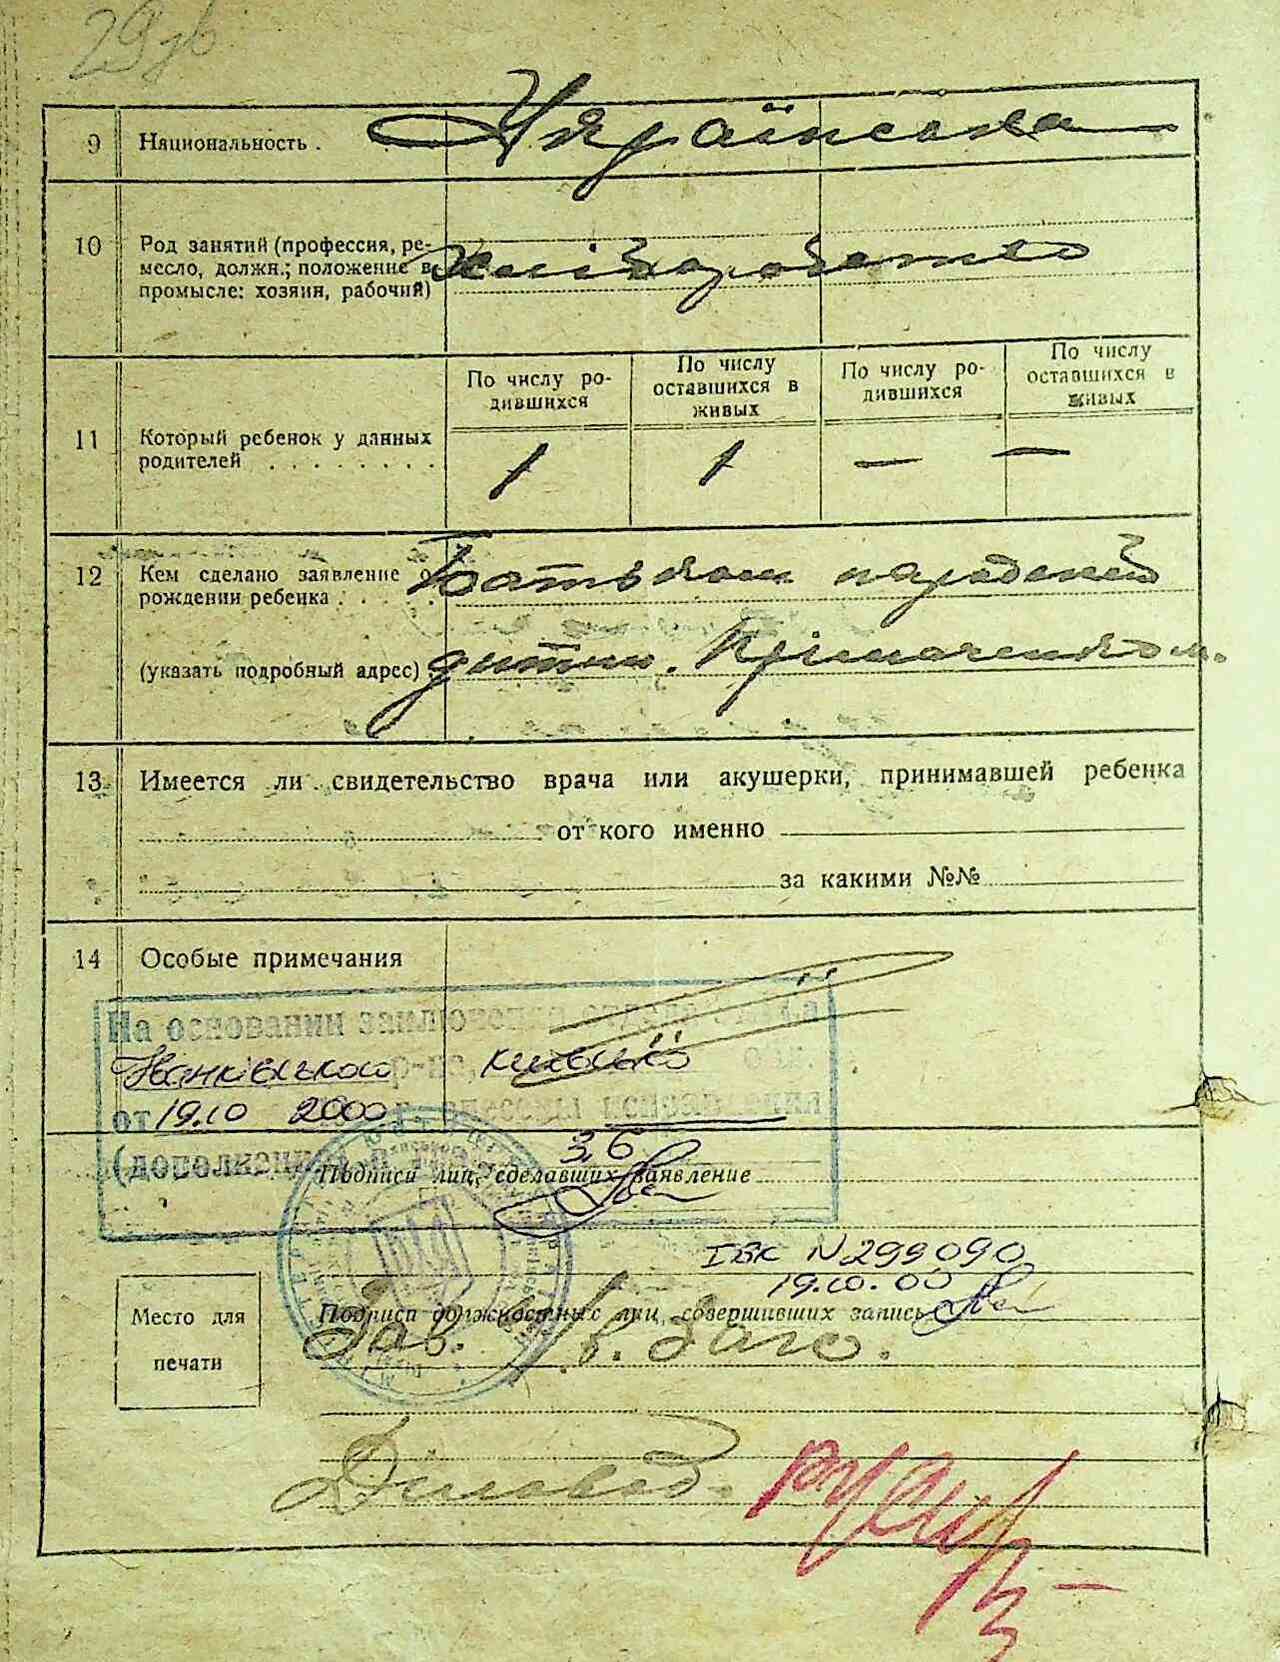 29
9 Национальность . Українська
10 Род занятий (профессия, ре-
месло, должн.; положение в
промысле: хозяин, рабочий)
хліборобство
11 Который ребенок у данных
родителей . . . . . . . .
По числу ро-
дившихся
По числу
оставшихся в
живых
По числу ро-
дившихся
По числу
оставшихся в
живых
1 1 — —
12 Кем сделано заявление о
рождении ребенка . . . . .
(указать подробный адрес)
Батьком
дитини. Прімаченком.
13 Имеется ли свидетельство врача или акушерки, принимавшей ребенка
от кого именно
за какими №№
14 Особые примечания
На основании
Іванківського р-на,
от 19.10 2000
36
Подписи лиц, сделавших заявление
ІБК N 299090
19.10.00
Подписи должностных лиц, совершивших запись
Место для
печати
Зав. в. Загс.
Діловод.